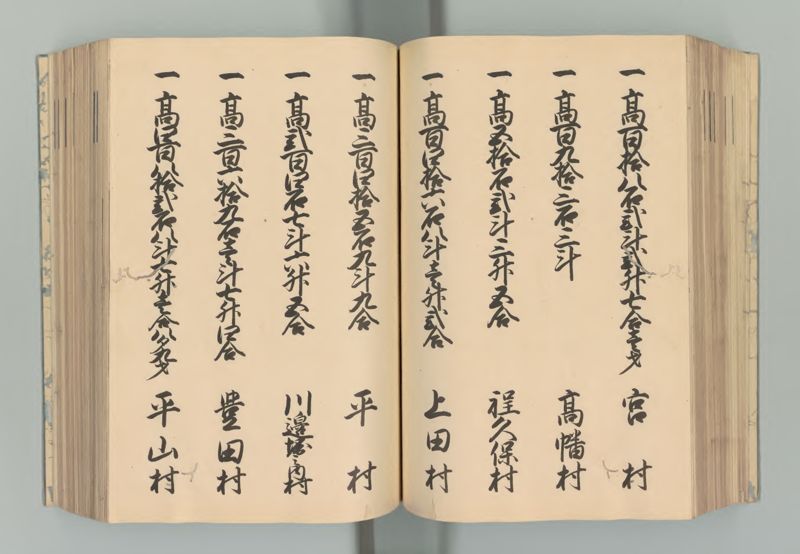 一 高百拾八石弐斗弐升七合壱才 宮村
一 高百九拾三石三斗 高幡村
一 高五拾石弐斗三升五合 程久保村
一 高百四拾六石八斗壱升弐合 上田村
一 高三百四拾五石九斗九合 平村
一 高弐百四石七斗六升五合 川邊堀之内村
一 高三百六拾九石壱斗七升四合 豊田村
一 高四百八拾弐石八斗六升壱合八夕九才 平山村